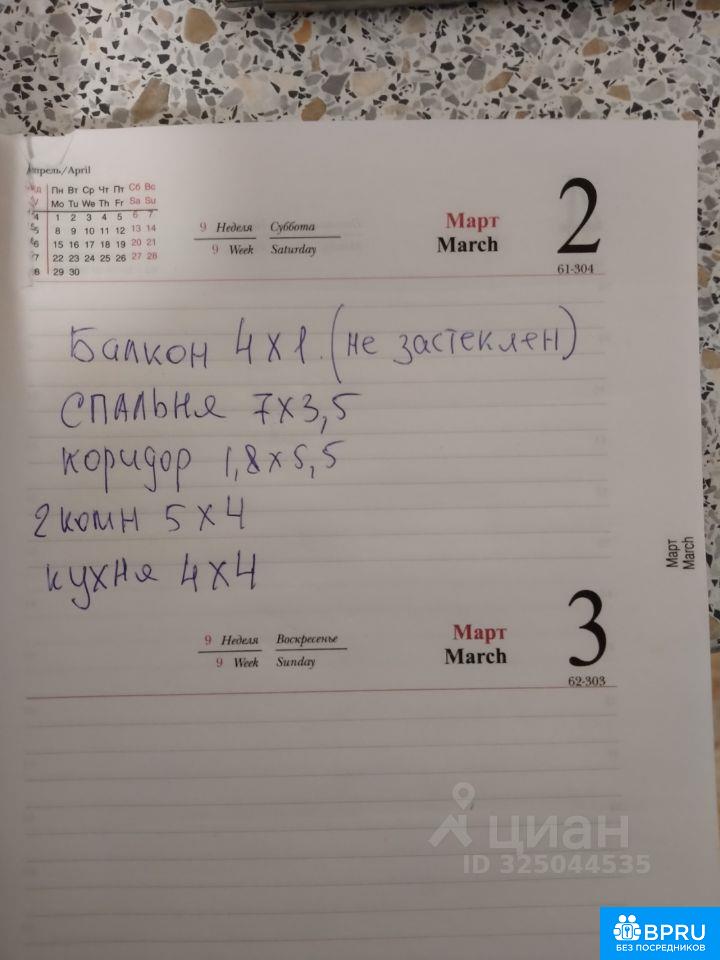 Апрель/April
Пн Вт Ср Чт Пт Сб Вс
Mo Tu We Th Fr Sa Su
1 2 3 4 5 6 7
8 9 10 11 12 13 14
15 16 17 18 19 20 21
22 23 24 25 26 27 28
29 30
9 Неделя Суббота
9 Week Saturday
Март
March
2
61-304
Балкон 4х1. (не застеклен)
СПАЛЬНЯ 7х3,5
коридор 1,8х5,5
2 комн 5х4
кухня 4х4
Март
March
9 Неделя Воскресенье
9 Week Sunday
Март
March
3
62-303
циан
ID 325044535
BPRU
БЕЗ ПОСРЕДНИКОВ